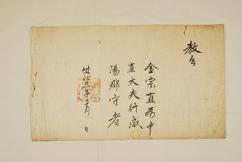 教旨
金宗直為中
直大夫行咸
陽郡守者
成化七年二月　日